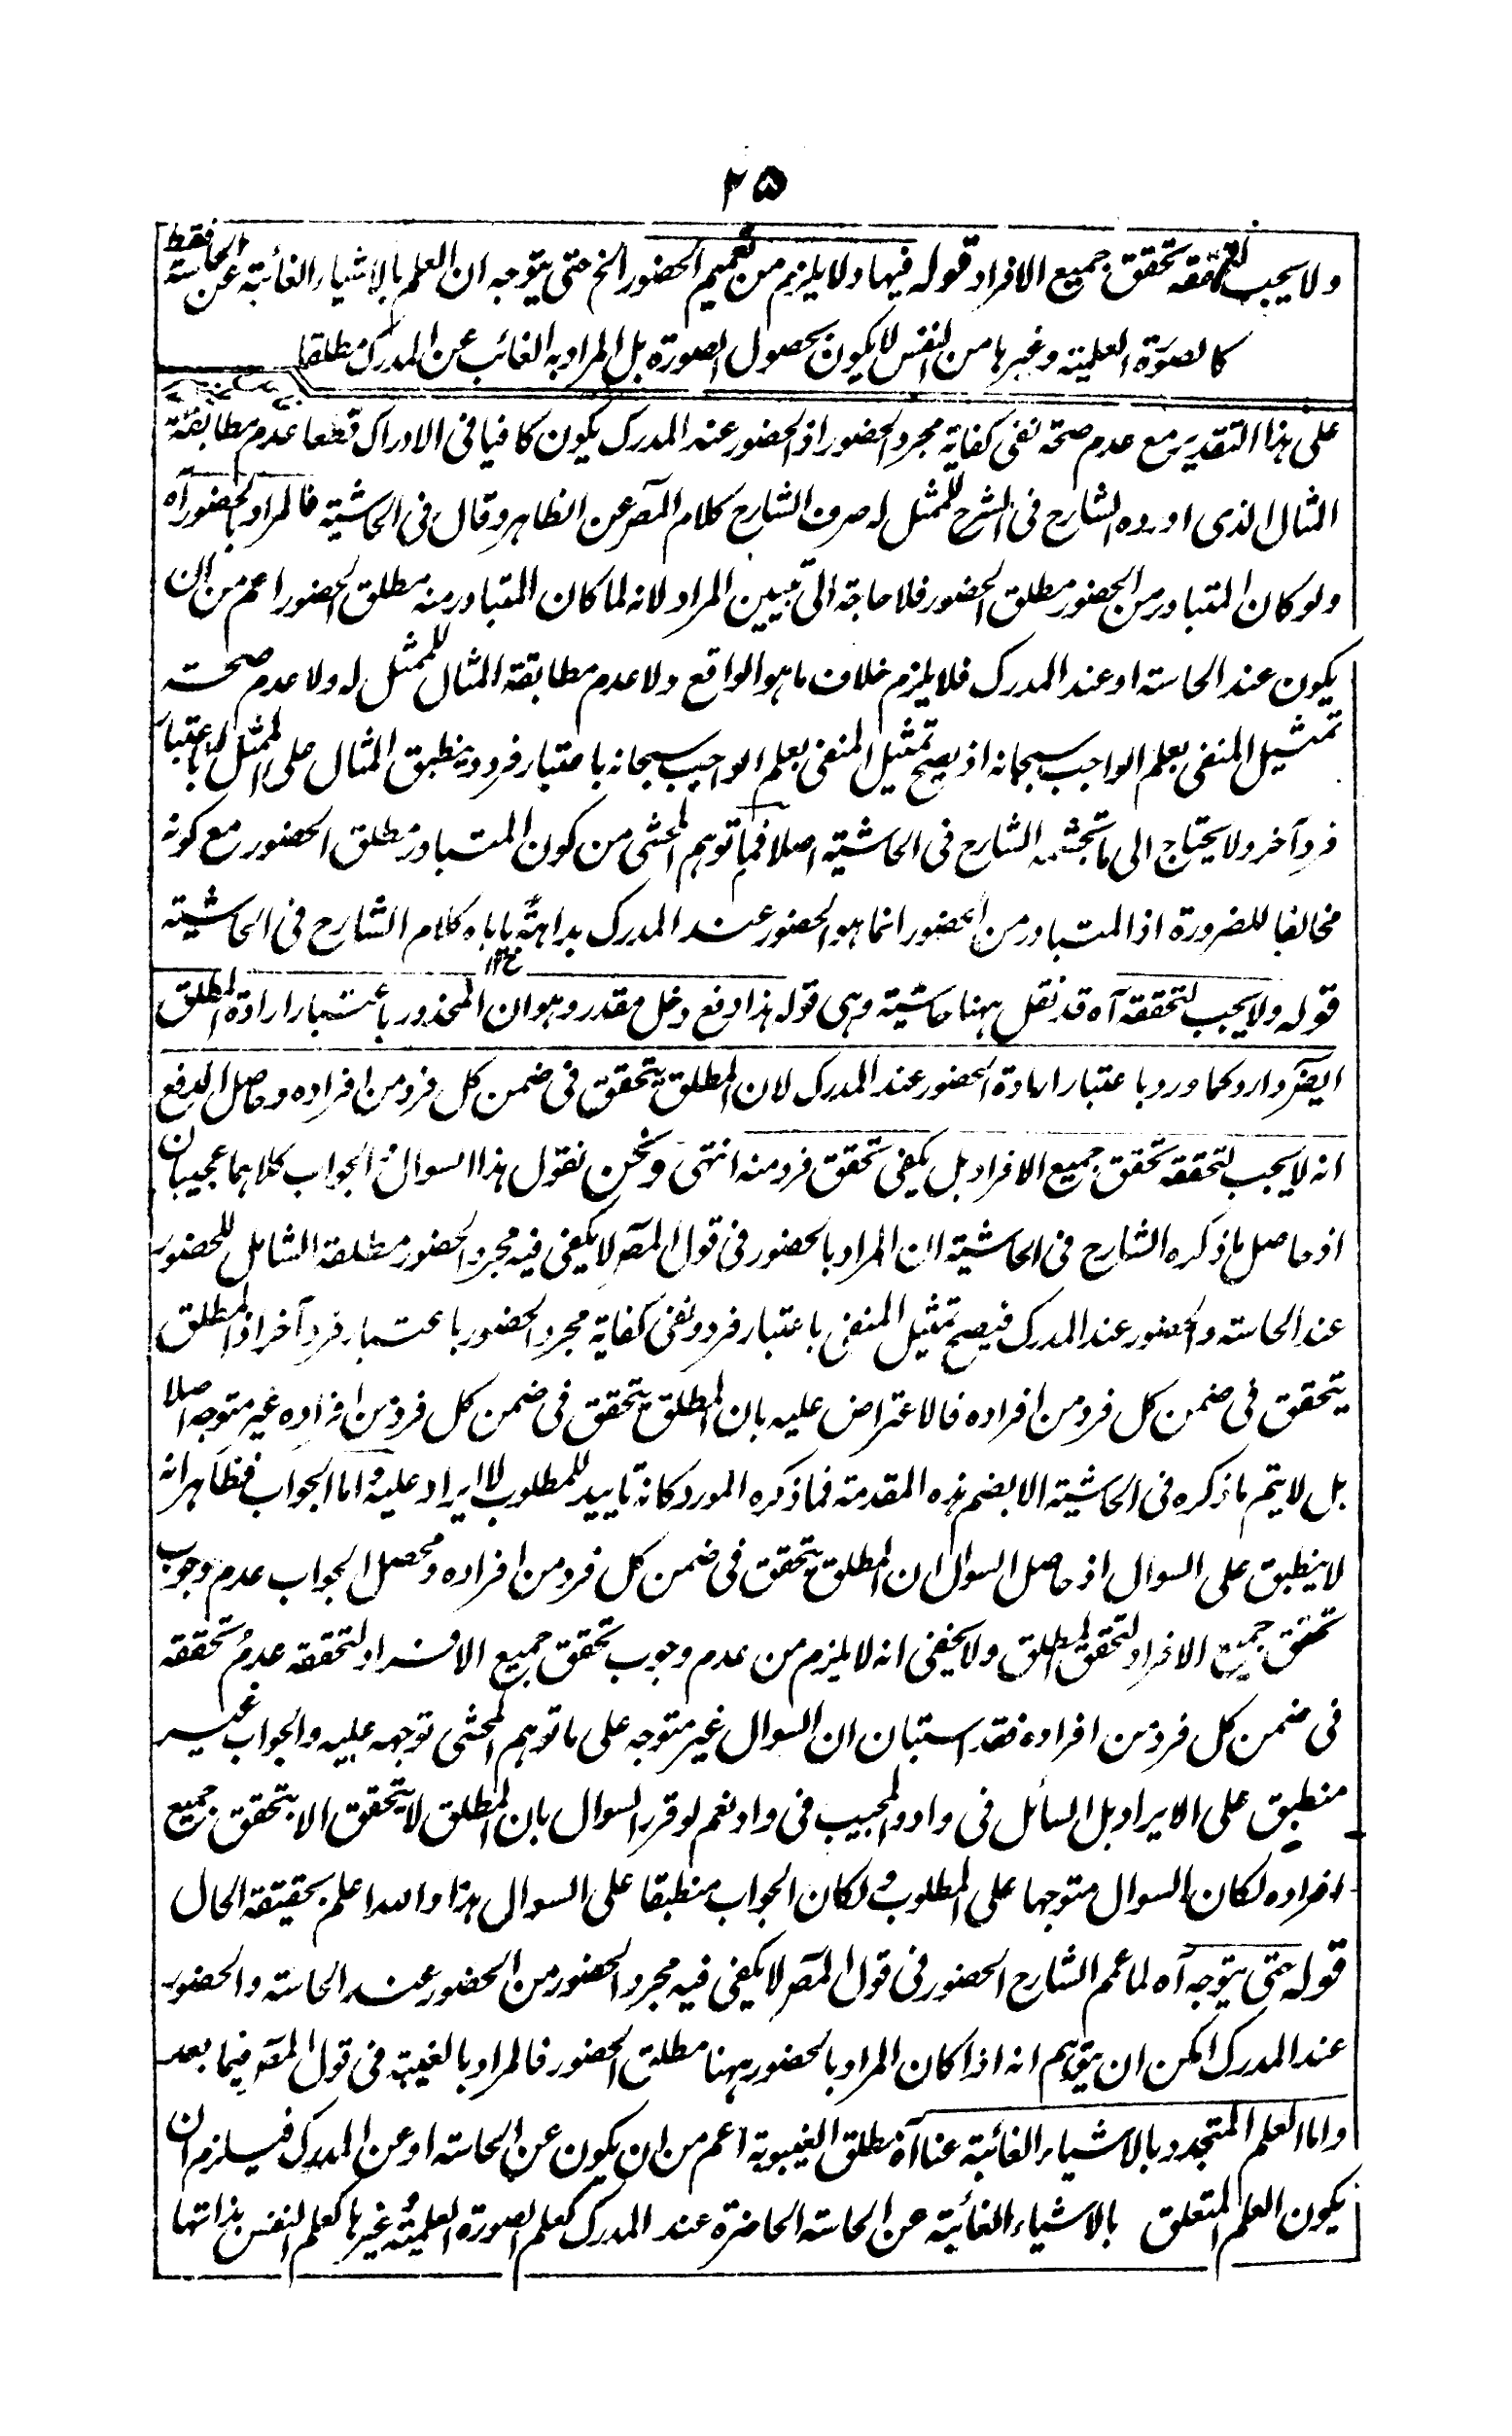 ۲۵
ولا يجب لتحققه تحقق جميع الافراد قوله فيها ولا يلزم من تعميم الحضور الخ حتى يتوجه ان العلم بالاشياء الغائبة عن الحاسة فقط
كالصورة العلمية وغيرها من النفس لا يكون بحصول الصورة بل المراد به الغائب عن المدرك مطلقا
على هذا التقدير مع عدم صحة نفى كفاية مجرد الحضور اذ الحضور عند المدرك يكون كافيا فى الادراك قطعا عدم مطابقة
المثال الذى اورده الشارح فى الشرح للممثل له صرف الشارح كلام المصر عن الظاهر وقال فى الحاشية فالمراد بالحضور آه
ولو كان المتبادر من الحضور مطلق الحضور فلا حاجة الى تبيين المراد لانه لما كان المتبادر منه مطلق الحضور اعم من ان
يكون عند الحاسة او عند المدرك فلا يلزم خلاف ما هو الواقع ولا عدم مطابقة المثال للممثل له ولا عدم صحة
تمثيل المنفى بعلم الواجب سبحانه اذ يصح تمثيل المنفى بعلم الواجب سبحانه باعتبار فرد وينطبق المثال على الممثل له باعتبار
فرد آخر ولا يحتاج الى ما تجشمه الشارح فى الحاشية اصلا فما توهم المحشى من كون المتبادر مطلق الحضور مع كونه
مخالفا للضرورة اذ المتبادر من الحضور انما هو الحضور عند المدرك بداهة ياباه كلام الشارح فى الحاشية
قوله ولا يجب لتحققه آه قد نقل ههنا حاشية وهى قوله هذا دفع دخل مقدر وهو ان المحذور باعتبار ارادة المطلق
ايضر وارد كما ورد باعتبار ارادة الحضور عند المدرك لان المطلق يتحقق فى ضمن كل فرد من افراده وحاصل الدفع
انه لا يجب لتحققه تحقق جميع الافراد بل يكفى تحقق فرد منه انتهى ونحن نقول هذا السوال والجواب كلاهما عجيبان
اذ حاصل ما ذكره الشارح فى الحاشية ان المراد بالحضور فى قول المصر لا يكفى فيه مجرد الحضور مطلقة الشامل للحضور
عند الحاسة والحضور عند المدرك فيصح تمثيل المنفى باعتبار فرد ونفى كفاية مجرد الحضور باعتبار فرد آخر اذ المطلق
يتحقق فى ضمن كل فرد من افراده فالاعتراض عليه بان المطلق يتحقق فى ضمن كل فرد من افراده غير متوجه اصلا
بل لا يتم ما ذكره فى الحاشية الا بضم هذه المقدمة فما ذكره المورد كانه تاييد للمطلوب لا ايراد عليه واما الجواب فظاهر انه
لا ينطبق على السوال اذ حاصل السوال ان المطلق يتحقق فى ضمن كل فرد من افراده ومحصل الجواب عدم وجوب
تحقق جميع الافراد لتحقق المطلق ولا يخفى انه لا يلزم من عدم وجوب تحقق جميع الافراد لتحققه عدم تحققه
فى ضمن كل فرد من افراده فقد استبان ان السوال غير متوجه على ما توهم المحشى توجهه عليه والجواب غير
منطبق على الايراد بل السائل فى واد والمجيب فى واد نعم لو قرر السوال بان المطلق لا يتحقق الا بتحقق جميع
افراده لكان السوال متوجها على المطلوب ولكان الجواب منطبقا على السوال هذا والله اعلم بحقيقة الحال
قوله حتى يتوجه آه لما عمم الشارح الحضور فى قول المصر لا يكفى فيه مجرد الحضور من الحضور عند الحاسة والحضور
عند المدرك امكن ان يتوهم انه اذا كان المراد بالحضور ههنا مطلق الحضور فالمراد بالغيبة فى قول المصر فيما بعد
واما العلم المتجدد بالاشياء الغائبة عنا آه مطلق الغيبوبة اعم من ان يكون عن الحاسة او عن المدرك فيلزم ان
يكون العلم المتعلق بالاشياء الغائبة عن الحاسة الحاضرة عند المدرك كعلم الصورة العلمية وغيرها كعلم النفس بذاتها